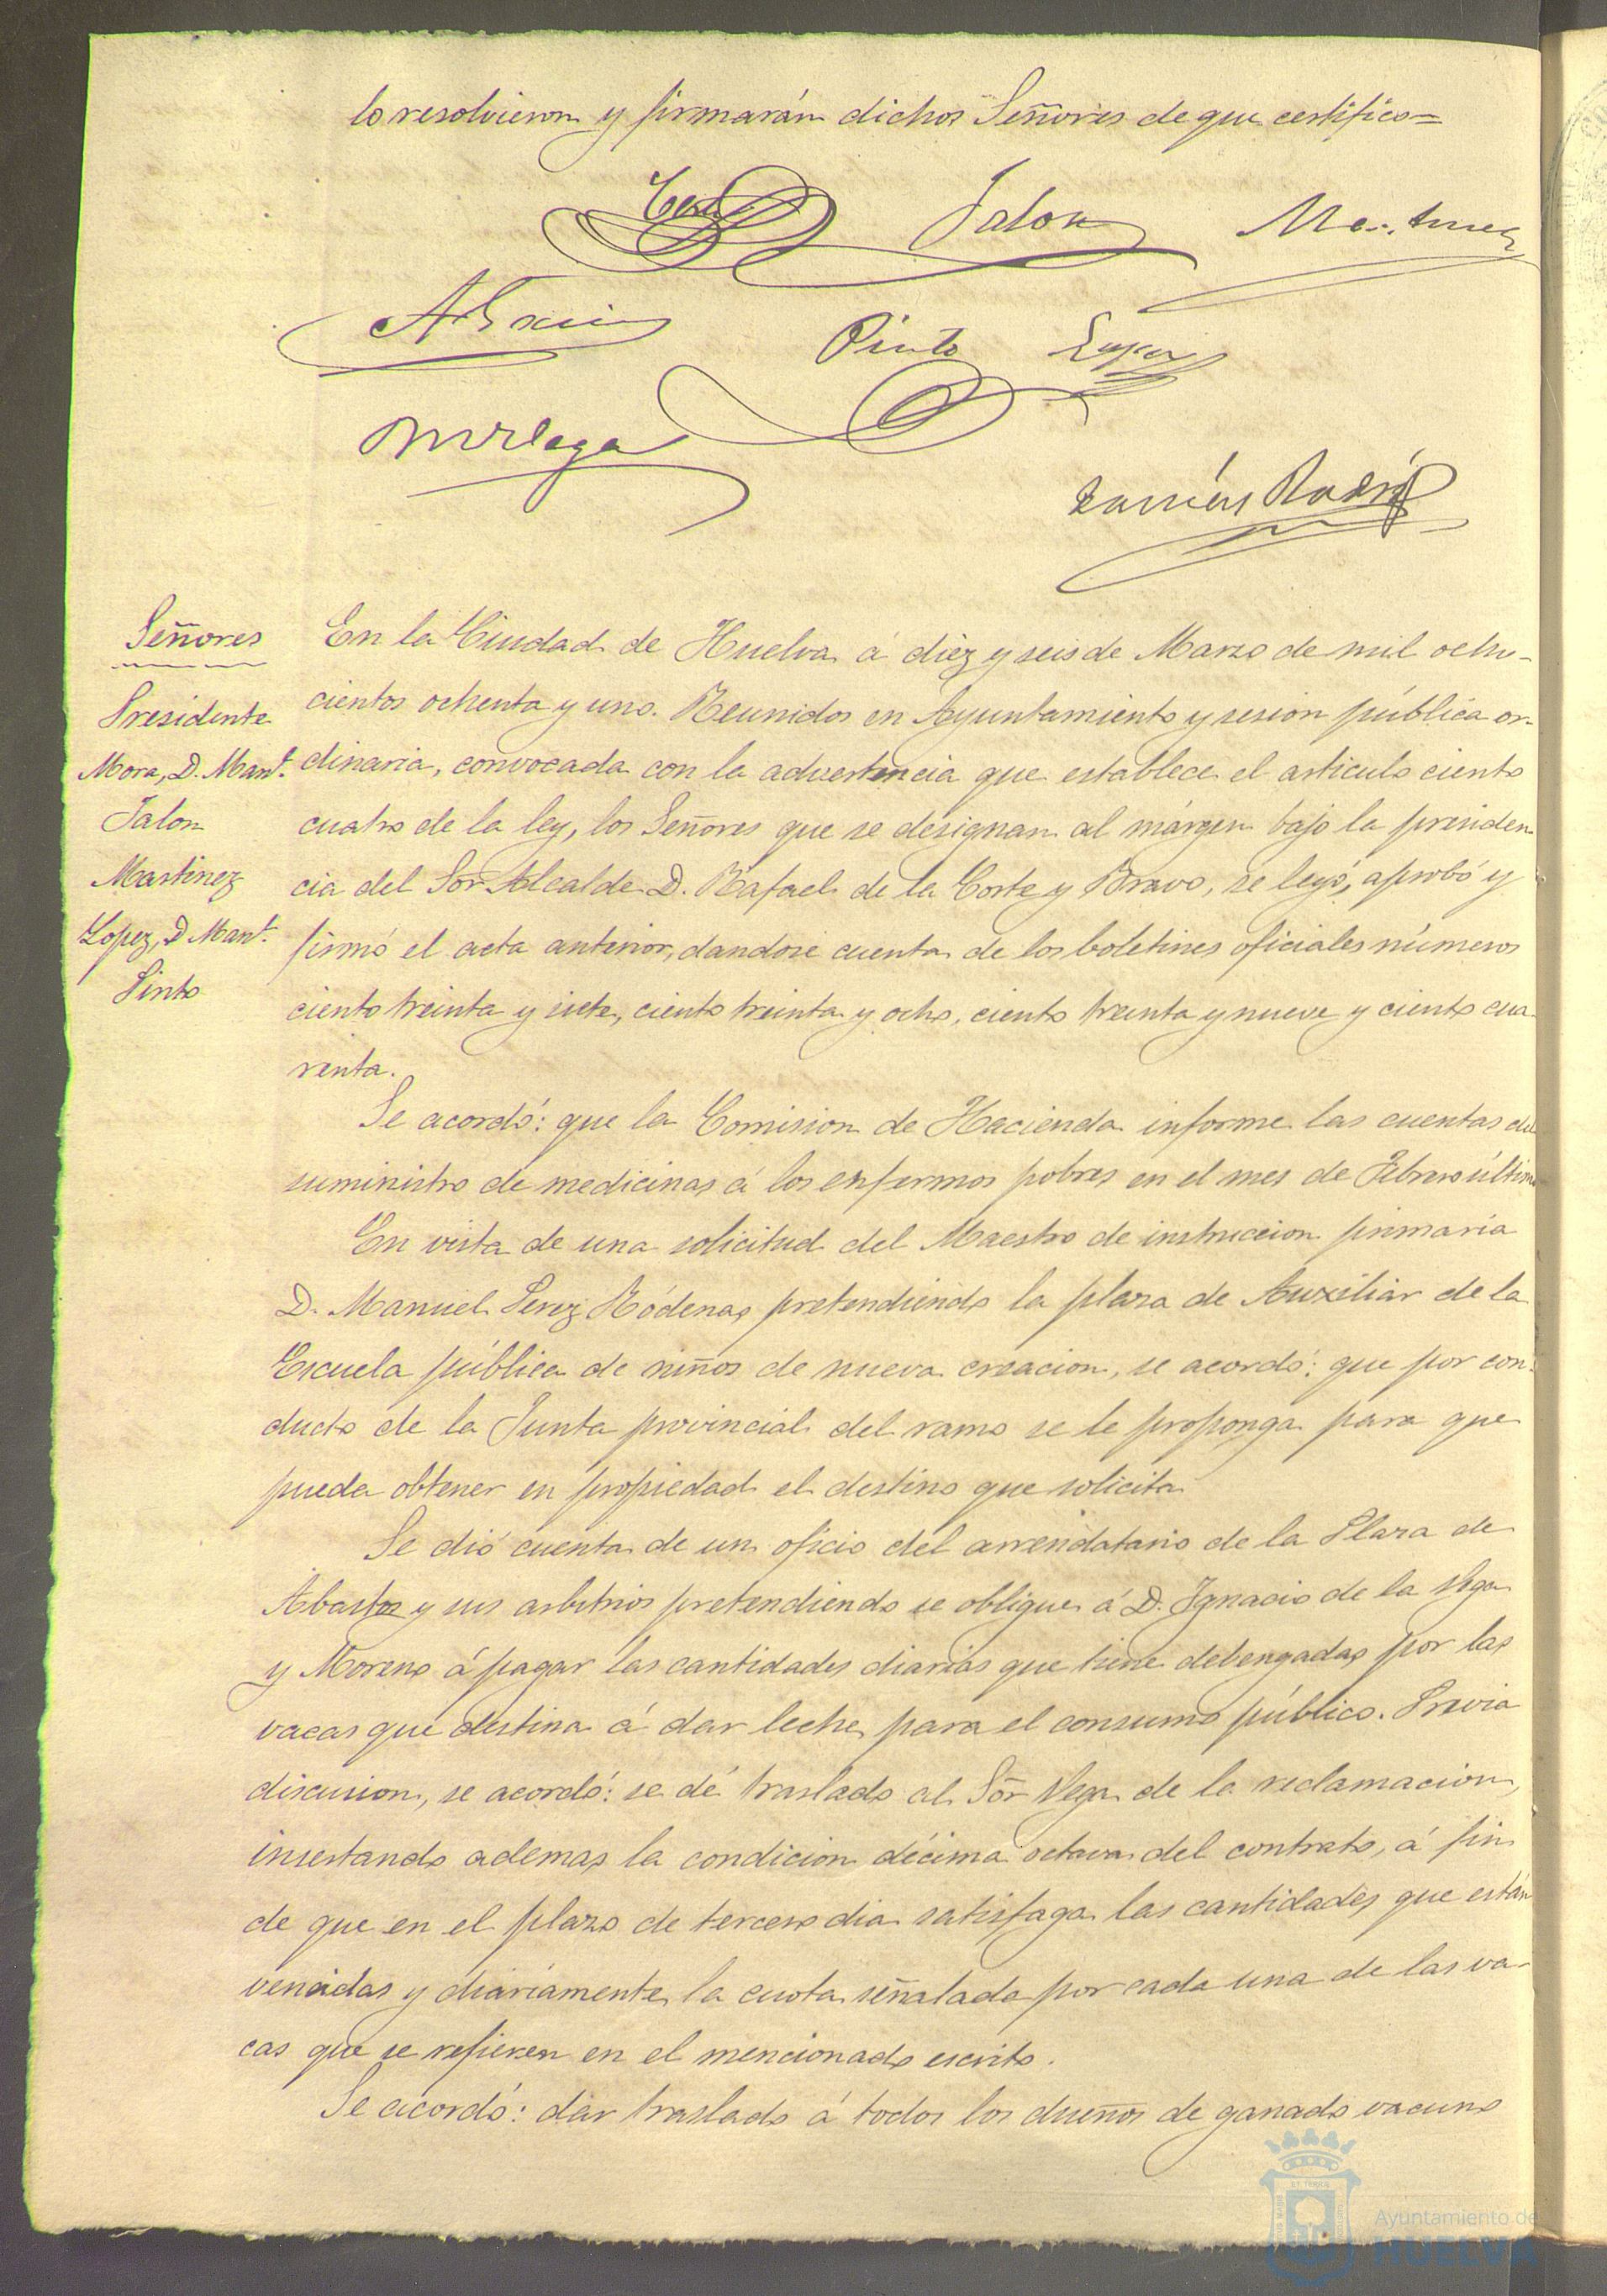 lo resolvieron y firmarán dichos Señores de que certifico=
Jalon
Pinto Lopez
Señores
Presidente
Mora, D. Man.l
Jalon
Martinez
Lopez, D Man.l
Pinto
En la Ciudad de Huelva á diez y seis de Marzo de mil ocho-
cientos ochenta y uno. Reunidos en Ayuntamiento y sesion pública or-
dinaria, convocada con la advertencia que establece el articulo ciento
cuatro de la ley, los Señores que se designan al márgen bajo la presiden
cia del Sor Alcalde D. Rafael de la Corte y Bravo, se leyó, aprobó y
firmó el acta anterior, dandose cuenta de los boletines oficiales números
ciento treinta y siete, ciento treinta y ocho, ciento treinta y nueve y ciento cua-
renta.
Se acordó: que la Comision de Hacienda informe las cuentas del
suministro de medicinas á los enfermos pobres en el mes de Febrero último
En vista de una solicitud del Maestro de instruccion primaria
D. Manuel Perez Ródenas pretendiendo la plaza de Auxiliar de la
Escuela pública de niños de nueva creacion, se acordó: que por con-
ducto de la Junta provincial del ramo se le proponga para que
pueda obtener en propiedad el destino que solicita
Se dió cuenta de un oficio del arrendatario de la Plaza de
Abastos y sus arbitrios pretendiendo se obligue á D. Ignacio de la Vega
y Moreno á pagar las cantidades diarias que tiene debengadas por las
vacas que destina á dar leche para el consumo público. Previa
discusion, se acordó: se dé traslado al Sor Vega de la reclamacion,
insertando ademas la condicion décima octava del contrato, á fin
de que en el plazo de tercero dia satisfaga las cantidades que están
vencidas y diariamente la cuota señalada por cada una de las va-
cas que se refieren en el mencionado escrito.
Se acordó: dar traslado á todos los dueños de ganado vacuno
Ayuntamiento de
HUELVA